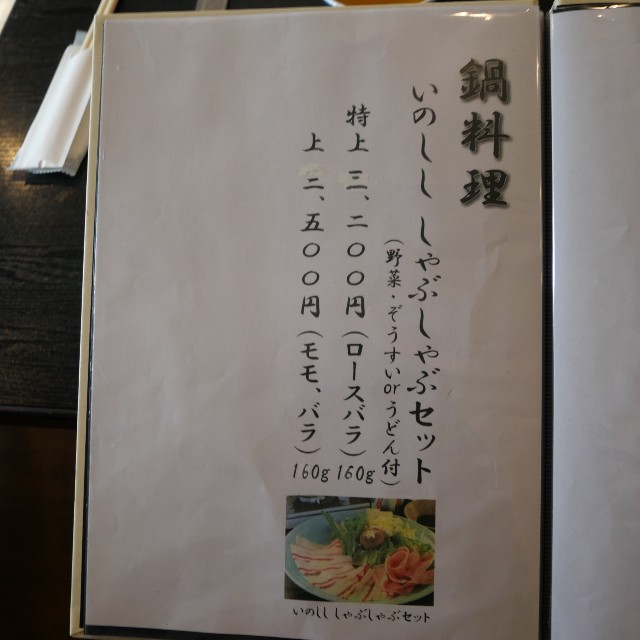 鍋料理
いのしし しゃぶしゃぶセット
(野菜・ぞうすいorうどん付)
特上 三、二〇〇円(ロースバラ)160g
上 二、五〇〇円(モモ、バラ)160g
いのしし しゃぶしゃぶセット